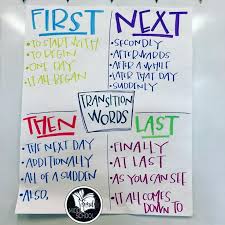 FIRST
• TO START WITH
• TO BEGIN
• ONE DAY
• IT ALL BEGAN
NEXT
• SECONDLY
• AFTERWARDS
• AFTER A WHILE
• LATER THAT DAY
• SUDDENLY
TRANSITION
WORDS
THEN
• THE NEXT DAY
• ADDITIONALLY
• ALL OF A SUDDEN
• ALSO,
LAST
• FINALLY
• AT LAST
• AS YOU CAN SEE
• IT ALL COMES
DOWN TO
SCHOOL